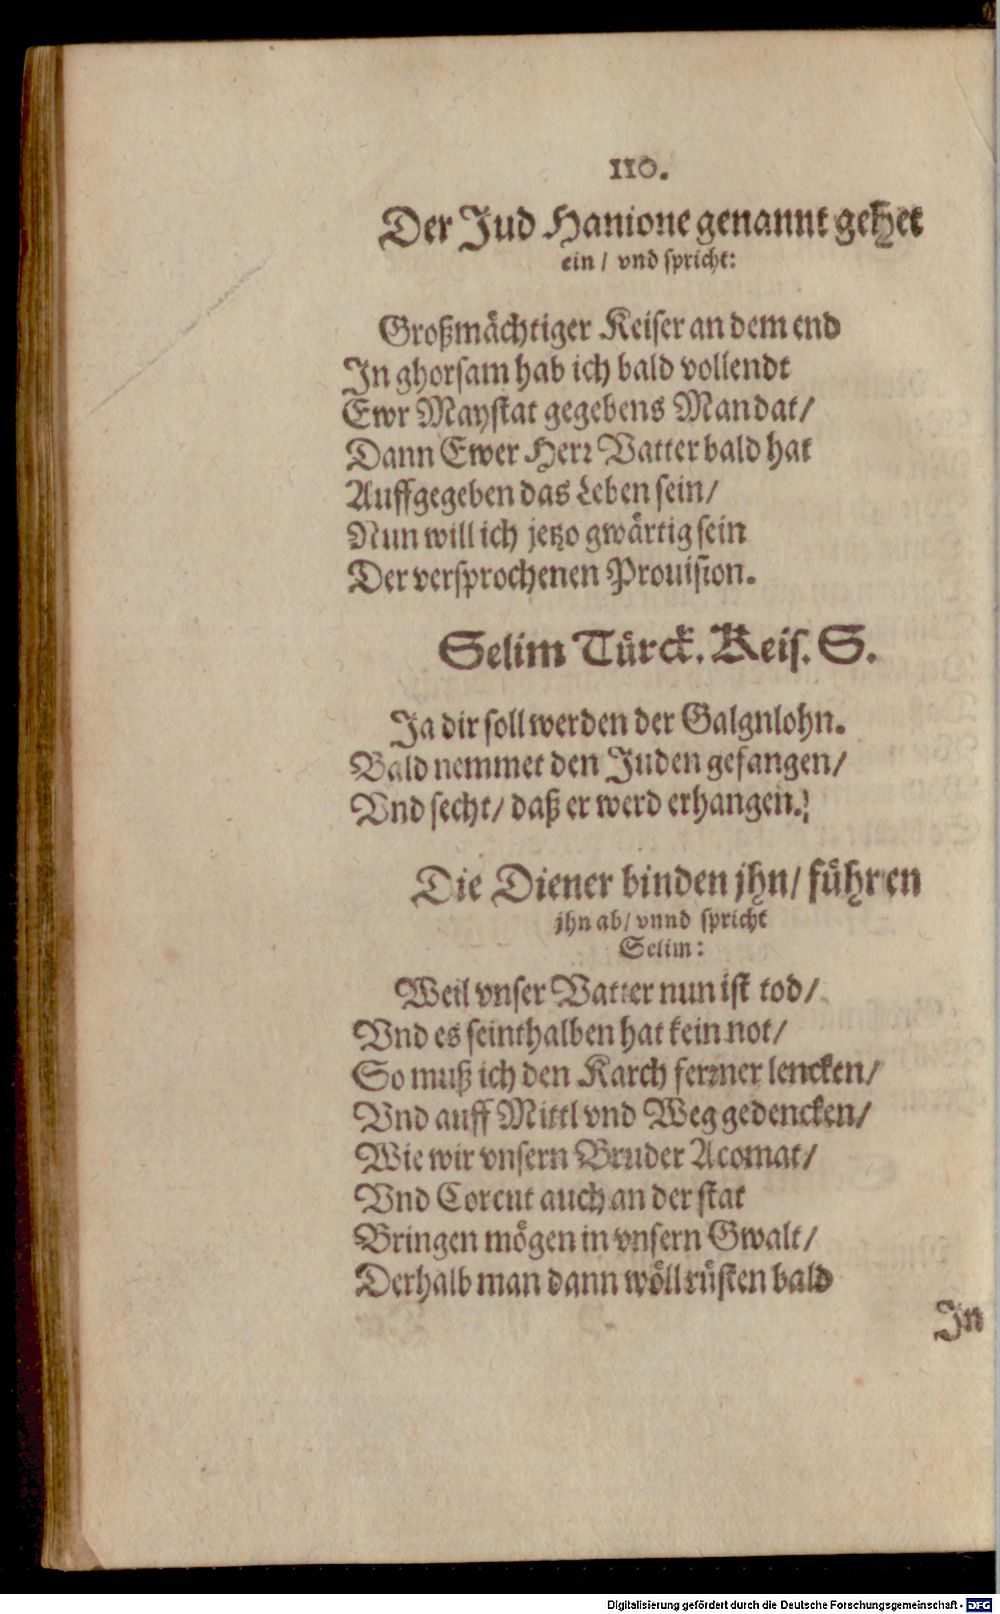 110.
Der Jud Hanione genannt gehet
ein / vnd spricht:
Großmächtiger Keiser an dem end
In ghorsam hab ich bald vollendt
Ewr Maystat gegebens Mandat/
Dann Ewer Herr Vatter bald hat
Auffgegeben das Leben sein/
Nun will ich jetzo gwärtig sein
Der versprochenen Prouision.
Selim Türck. Keis. S.
Ja dir soll werden der Galgnlohn.
Bald nemmet den Juden gefangen/
Vnd secht/ daß er werd erhangen.
Die Diener binden jhn/ führen
jhn ab/ vnnd spricht
Selim:
Weil vnser Vatter nun ist tod/
Vnd es seinthalben hat kein not/
So muß ich den Karch ferrner lencken/
Vnd auff Mittl vnd Weg gedencken/
Wie wir vnsern Bruder Acomat/
Vnd Corcut auch an der stat
Bringen mögen in vnsern Gwalt/
Derhalb man dann wöll rüsten bald
In
Digitalisierung gefördert durch die Deutsche Forschungsgemeinschaft - DFG